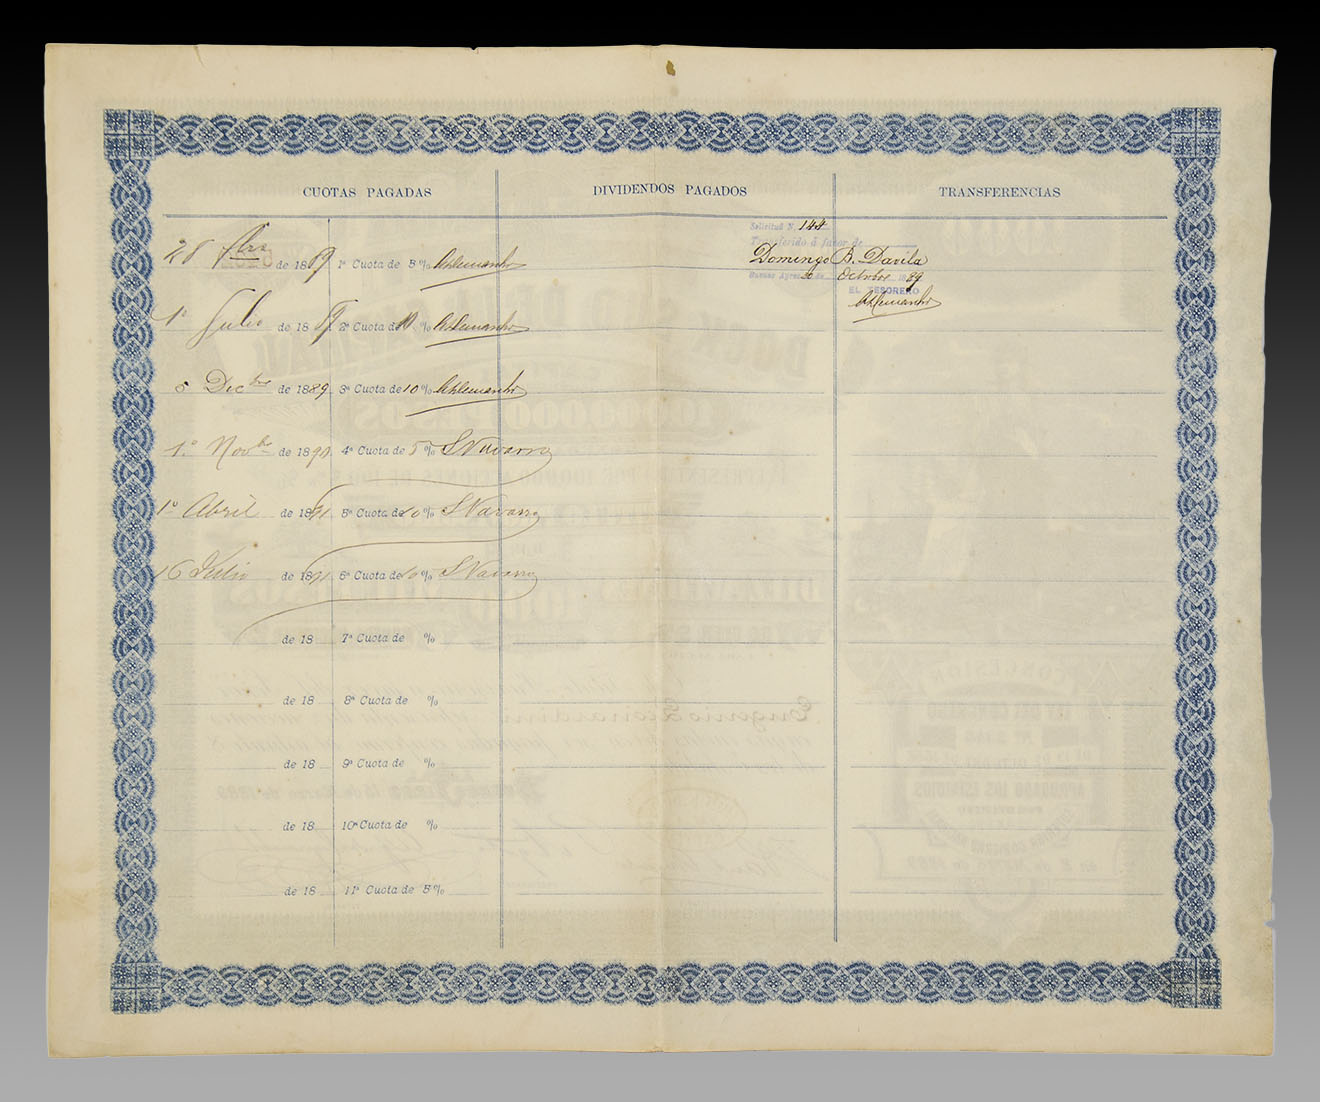 CUOTAS PAGADAS
DIVIDENDOS PAGADOS
TRANSFERENCIAS
28 de 1889 1ª Cuota de 5%
1º Julio de 1889 2ª Cuota de 10%
5 Dicbre de 1889 3ª Cuota de 10%
1º Novbre de 1890 4ª Cuota de 5% S Navarro
1º Abril de 1891 5ª Cuota de 10% S Navarro
16 Julio de 1891 6ª Cuota de 10% S Navarro
de 18 7ª Cuota de %
de 18 8ª Cuota de %
de 18 9ª Cuota de %
de 18 10ª Cuota de %
de 18 11ª Cuota de 5%
Solicitud N. 144
Transferido á favor de
Domingo B. Davila
Buenos Ayres 30 de Octubre 1889
EL TESORERO